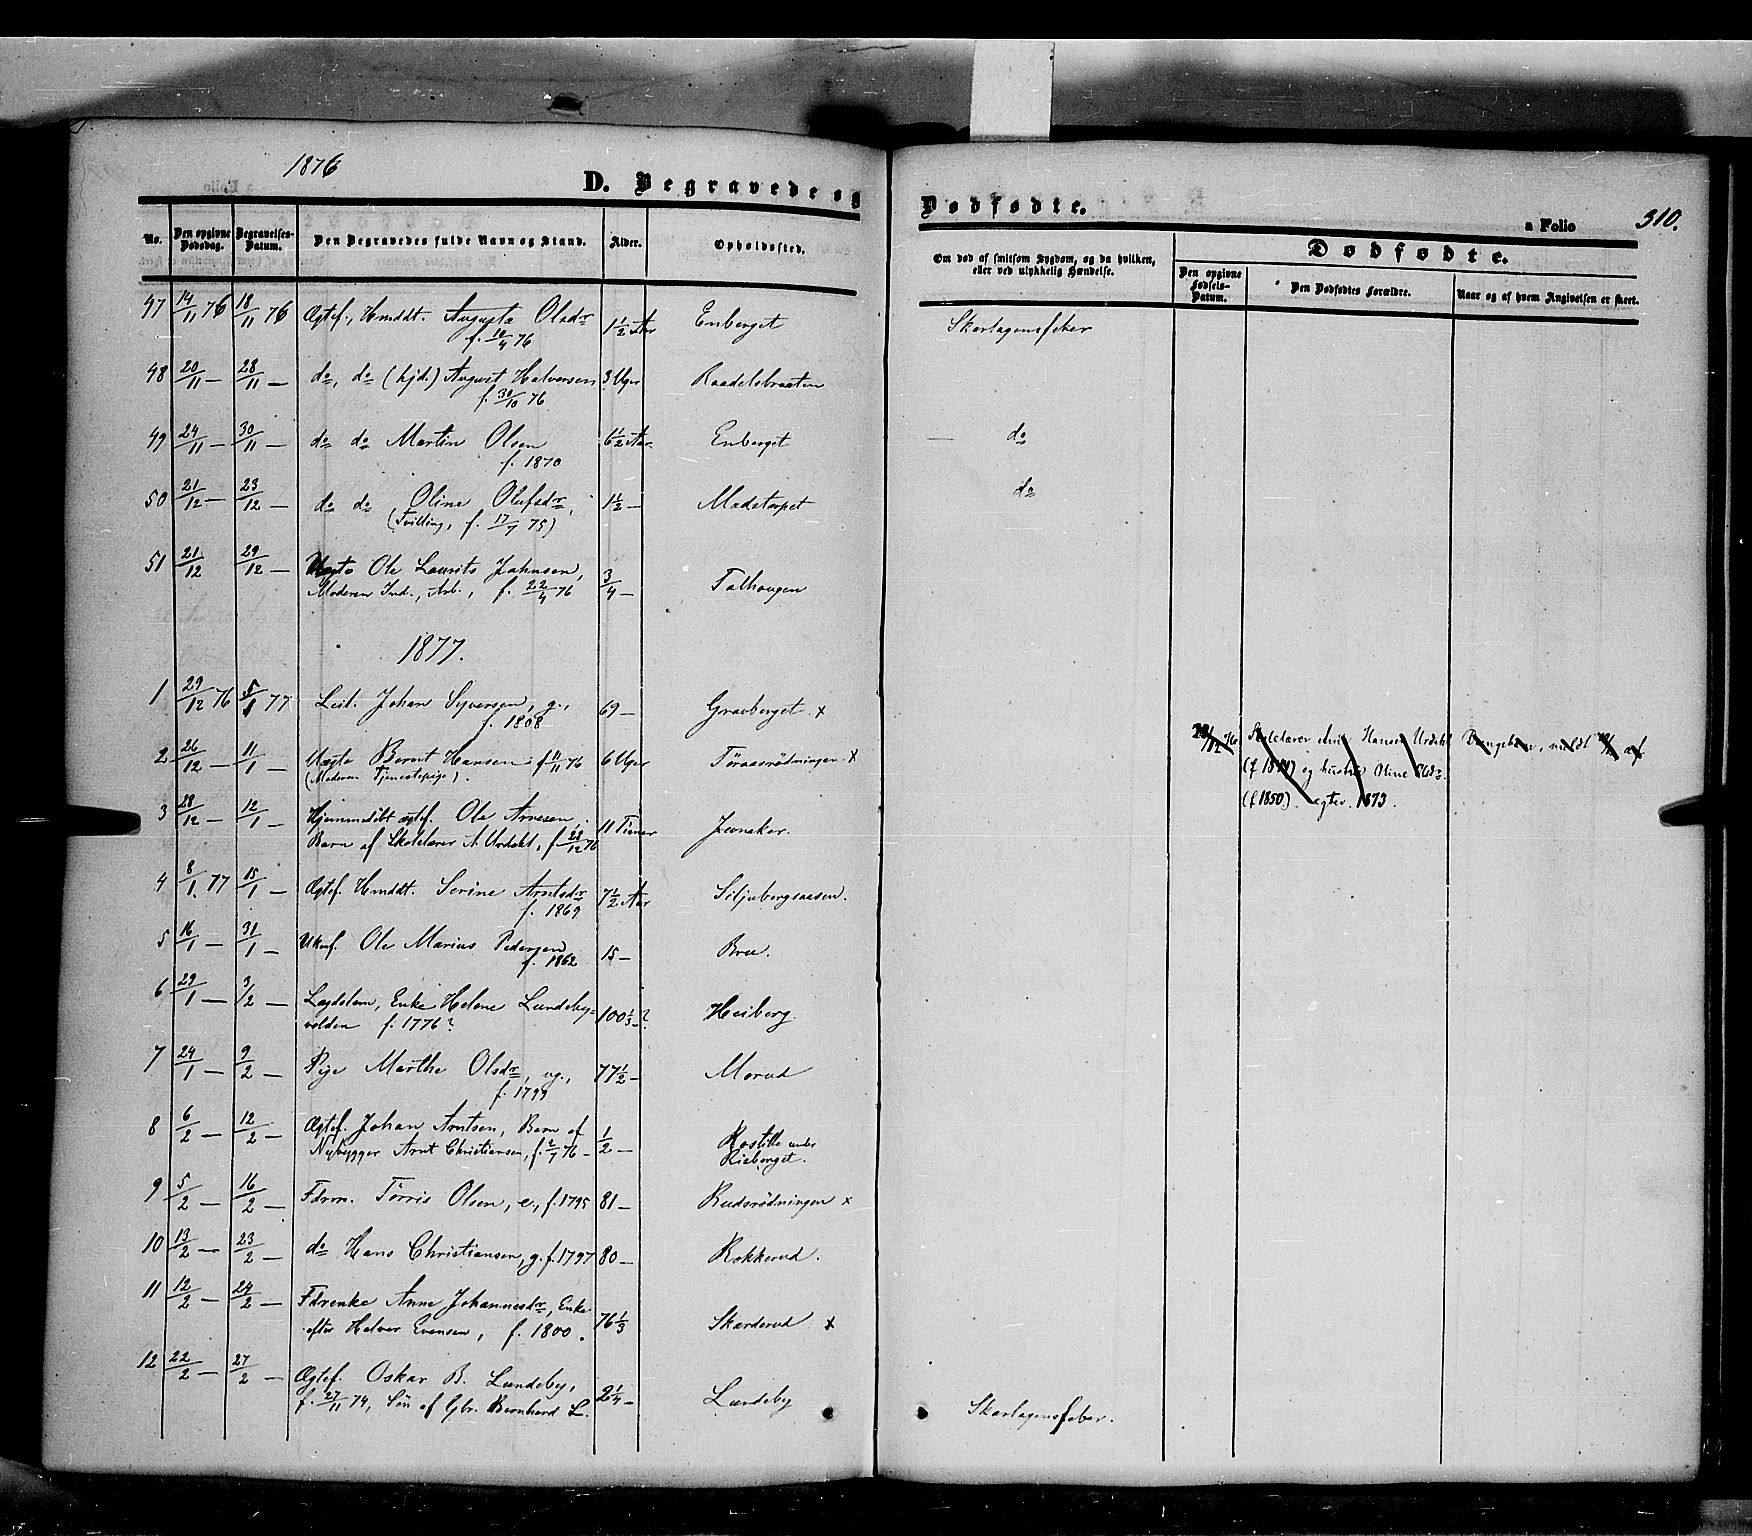 1876
D. Begravede og Dødfødte.
a Folio 310.
No. Den opgivne Dødsdag. Begravelses-Datum. Den Begravedes fulde Navn og Stand. Alder. Opholdssted. Om død af smitsom Sygdom, og da hvilken, eller ved ulykkelig Hændelse. Dødfødte.
Den opgivne Fødsels-Datum. Den Dødfødtes Forældre. Naar og af hvem Angivelsen er skeet.
47 14/11 76 18/11 76 Ægtef., Hmddt. Augusta Olsdr 1 1/2 Aar Enberget Skarlagensfeber
f. 10/4 76
48 20/11 — 28/11 — do, do (hjd.) August Halvorsen 3 Uger Raadelsbraaten
f. 30/10 76
49 24/11 — 30/11 — do do Martin Olsen 6 1/2 Aar Enberget — do
f. 1870
50 21/12 — 23/12 — do do Oline Olufsdr, 1 1/2 — Madstorpet do
(Tvilling, f. 17/7 75)
51 21/12 29/12 — Uægte Ole Laurits Johnsen, 3/4 — Falhaugen
Moderen Ind., Arb., f. 22/4 76
1877.
1 29/12 76 5/1 77 Leil. Johan Syversen, g., 69 — Gravberget. x
f. 1808
2 26/12 — 11/1 — Uægte Bernt Hansen f 11/11 76 6 Uger Föraasrödningen. x
(Moderen Tjenestepige).
3 28/12 — 12/1 — Hjemmedöbt ægtef. Ole Arnesen, 11 Timer Juneker.
Barn af Skolelærer A. Urdahl, f 28/12 76
28/12 76 Skolelærer Hansen Urdahl
(f 18) og hustru Oline
(f 1850). egtev. 1873.
4 8/1 77 15/1 — Ægtef. Hmddt. Serine Arntsdr 7 1/2 Aar Siljubergsaasen.
f. 1869
5 16/1 — 31/1 — Ukonf. Ole Marius Pedersen 15 — Bree.
f. 1862
6 29/1 — 3/2 — Lægdslem, Enke Helene Lundeby- 100 1/3 — ? Heiberg.
volden f. 1776?
7 24/1 — 9/2 — Pige Marthe Olsdr, ug., 77 1/2 — Morud
f. 1799
8 6/2 — 12/2 — Ægtef. Johan Arntsen, Barn af 1/2 — Rostille under
Nybygger Arnt Christiansen, f. 2/7 76 — Risberget.
9 5/2 — 16/2 — Fdrm. Törris Olsen, e, f. 1795 81 — Rudsrödningen x
10 13/2 — 23/2 — do Hans Christiansen, g. f. 1797 80 — Rokkerud.
11 12/2 — 24/2 — Fdrenke Anne Johannesdr, Enke 76 1/3 Skarderud x
efter Halvor Evensen, f. 1800.
12 22/2 — 27/2 — Ægtef. Oskar B. Lundeby, 2 1/4 — Lundeby Skarlagensfeber.
f. 27/11 74, Sön af Gbr. Bernhard L.